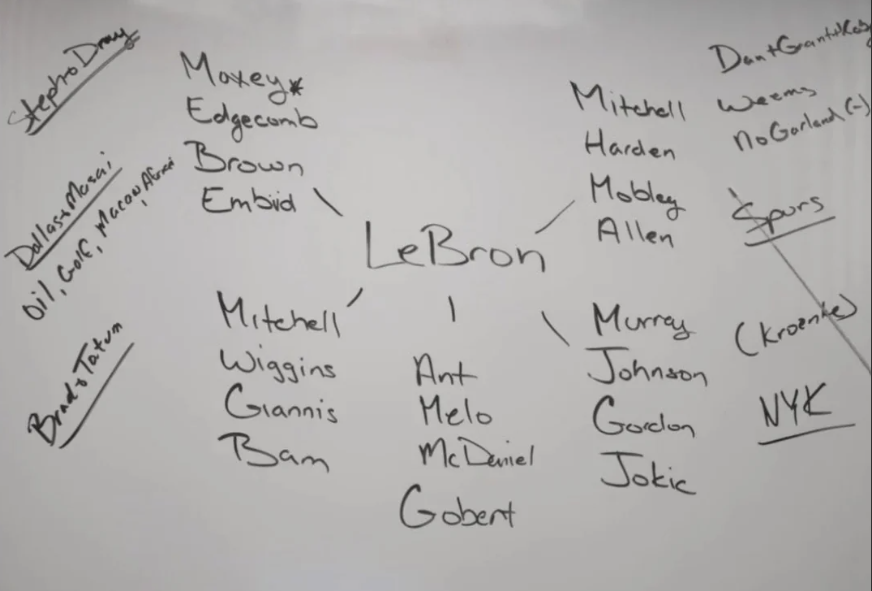 Steph & Dray
Dallas & Masai
Oil, Golf, Macau,
Brad & Tatum
Maxey*
Edgecomb
Brown
Embiid
LeBron
Mitchell
Wiggins
Giannis
Bam
Ant
Melo
McDaniel
Gobert
Mitchell
Harden
Mobley
Allen
Murray
Johnson
Gordon
Jokic
Dan + Grant + Koby
Weems
No Garland (-)
Spurs
(Kroenke)
NYK